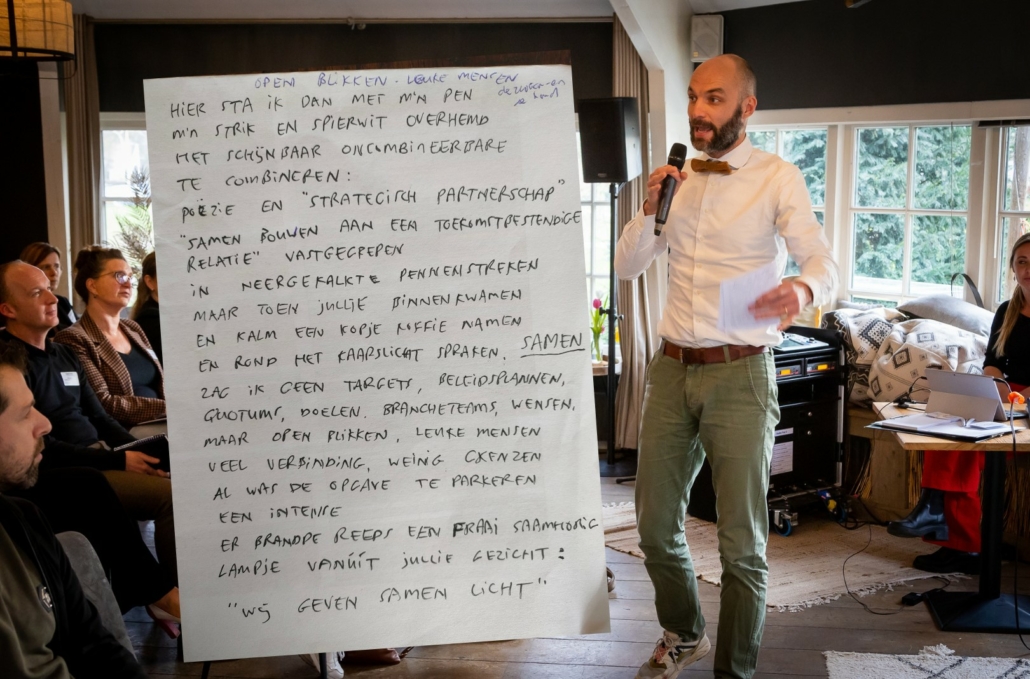 OPEN BLIKKEN - LEUKE MENSEN
HIER STA IK DAN MET M'N PEN
M'N STRIK EN SPIERWIT OVERHEMD
HET SCHIJNBAAR ONCOMBINEERBARE
TE COMBINEREN:
POËZIE EN "STRATEGISCH PARTNERSCHAP"
"SAMEN BOUWEN AAN EEN TOEKOMSTBESTENDIGE
RELATIE" VASTGEGREPEN
IN NEERGEKALKTE PENNENSTREKEN
MAAR TOEN JULLIE BINNENKWAMEN
EN KALM EEN KOPJE KOFFIE NAMEN
EN ROND HET KAARSLICHT SPRAKEN. SAMEN
ZAG IK GEEN TARGETS, BELEIDSPLANNEN,
QUOTUMS, DOELEN. BRANCHETEAMS, WENSEN,
MAAR OPEN BLIKKEN, LEUKE MENSEN
VEEL VERBINDING, WEINIG GRENZEN
AL WAS DE OPGAVE TE PARKEREN
EEN INTENSE
ER BRANDDE REEDS EEN FRAAI SAAMHORIG
LAMPJE VANÚÍT JULLIE GEZICHT:
"WIJ GEVEN SAMEN LICHT"